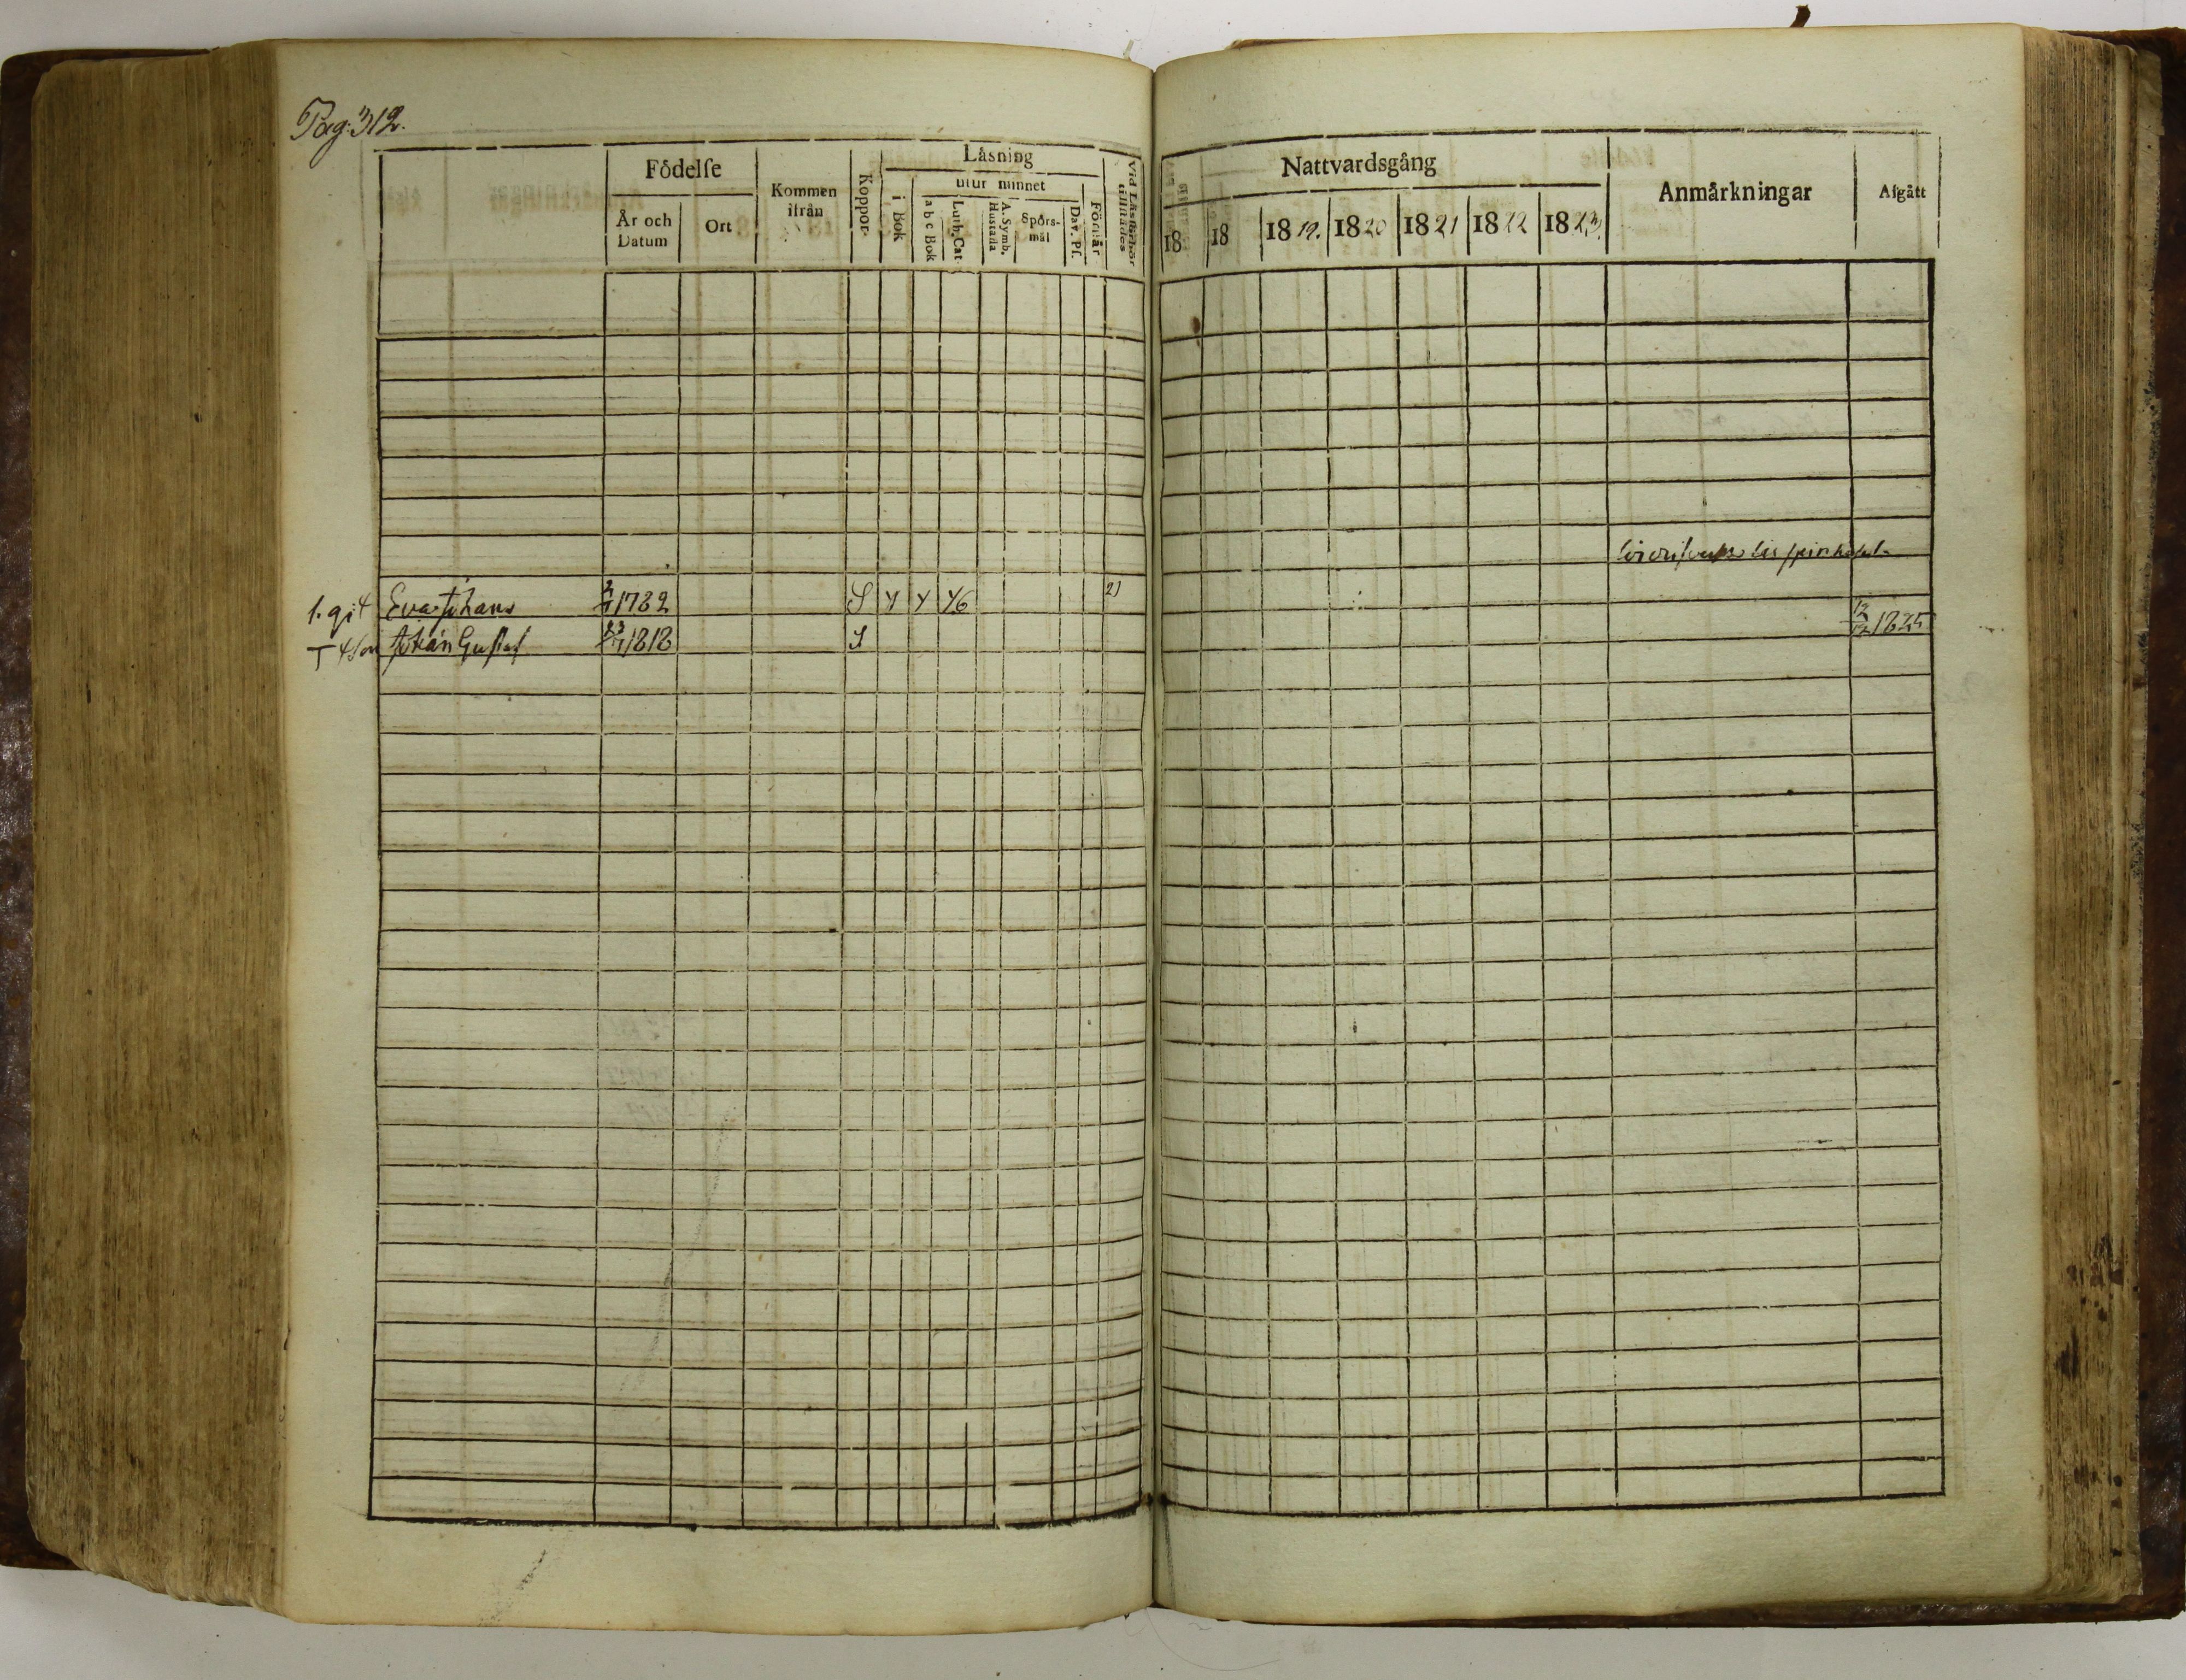 Pag: 312.
Födelse
År och Datum
Ort
Kommen ifrån
Koppor.
Läsning
i Bok
utur minnet
a b c Bok
Luth. Cat.
A. Symb. Hustafla
Spörsmål
Dav. Ps.
Förstår
Vid Läsförhör tillstädes
Nattvardsgång
18
18
1819.
1820
1821
1822
1823
Anmärkningar
Afgått
Eva Johans 1782 S 4 4 46 21
Son Johan Gustaf 1818 S
12/12 1825